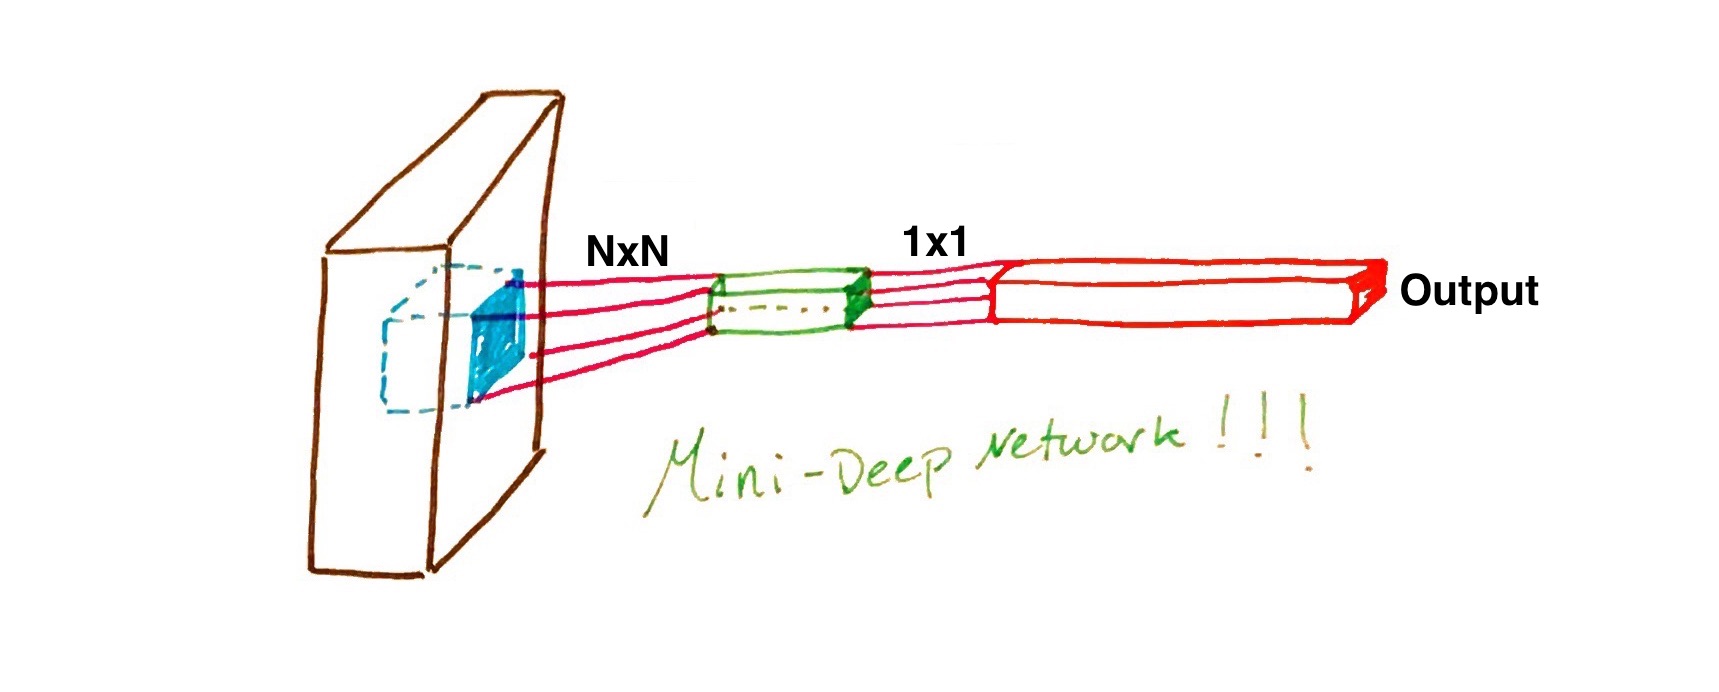 NxN
1x1
Output
Mini-Deep Network!!!